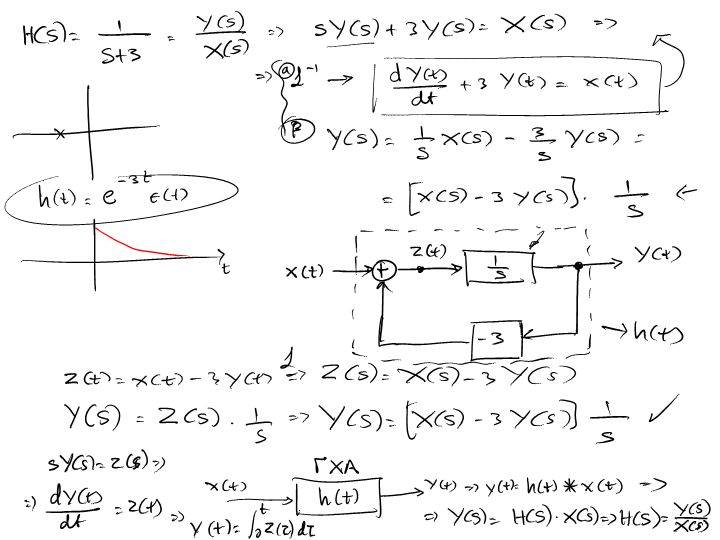 H(s) = 1/(s+3) = Y(s)/X(s) => sY(s) + 3Y(s) = X(s) =>
=> (a) L⁻¹ → dy(t)/dt + 3 y(t) = x(t)
(β) Y(s) = 1/s X(s) - 3/s Y(s) =
= [X(s) - 3 Y(s)] · 1/s ←
h(t) = e^{-3t} ε(t)
t
x(t) + z(t) 1/s y(t)
-3 → h(t)
z(t) = x(t) - 3y(t) L=> Z(s) = X(s) - 3 Y(s)
Y(s) = Z(s) · 1/s => Y(s) = [X(s) - 3 Y(s)] 1/s ✓
sY(s) = Z(s) =>
=> dy(t)/dt = z(t) => y(t) = ∫₀ᵗ z(τ) dτ
ΓΧΑ
x(t) h(t) y(t) => y(t) = h(t) * x(t) =>
=> Y(s) = H(s) · X(s) => H(s) = Y(s)/X(s)